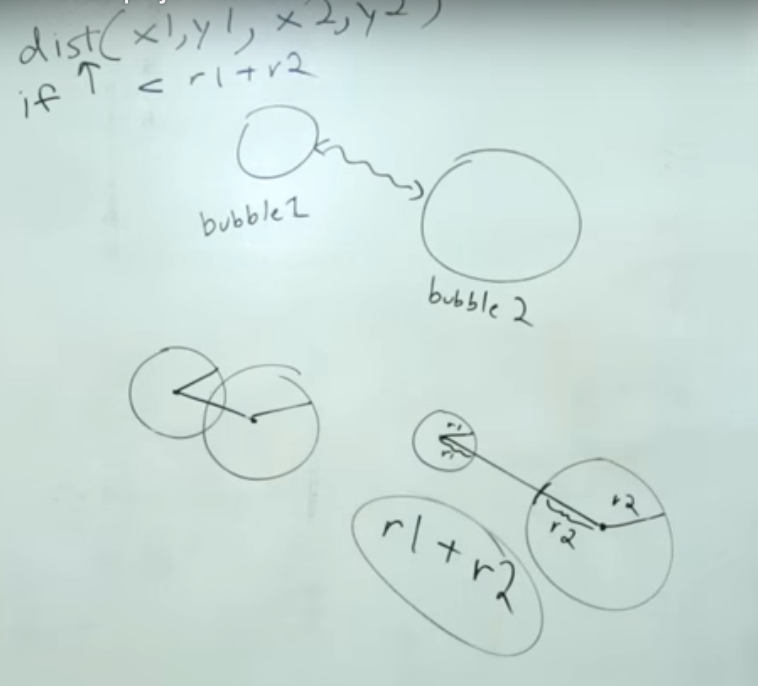 dist(x1,y1, x2,y2)
if ↑ < r1+r2
bubble1
bubble 2
r1
r1
r2
r2
r1+r2